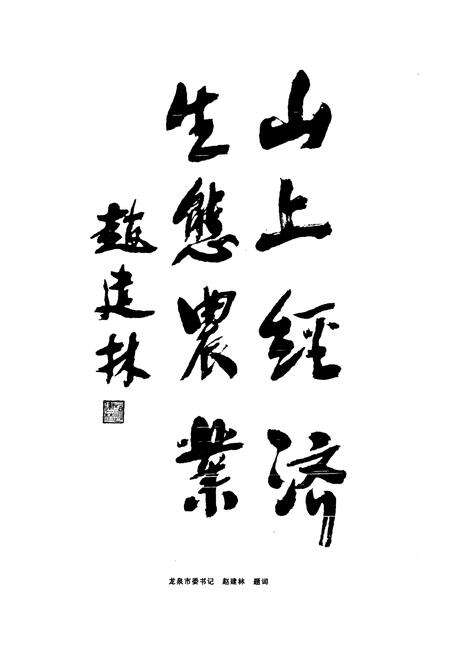 山上經济
生態農業
趙建林
龙泉市委书记 赵建林 题词